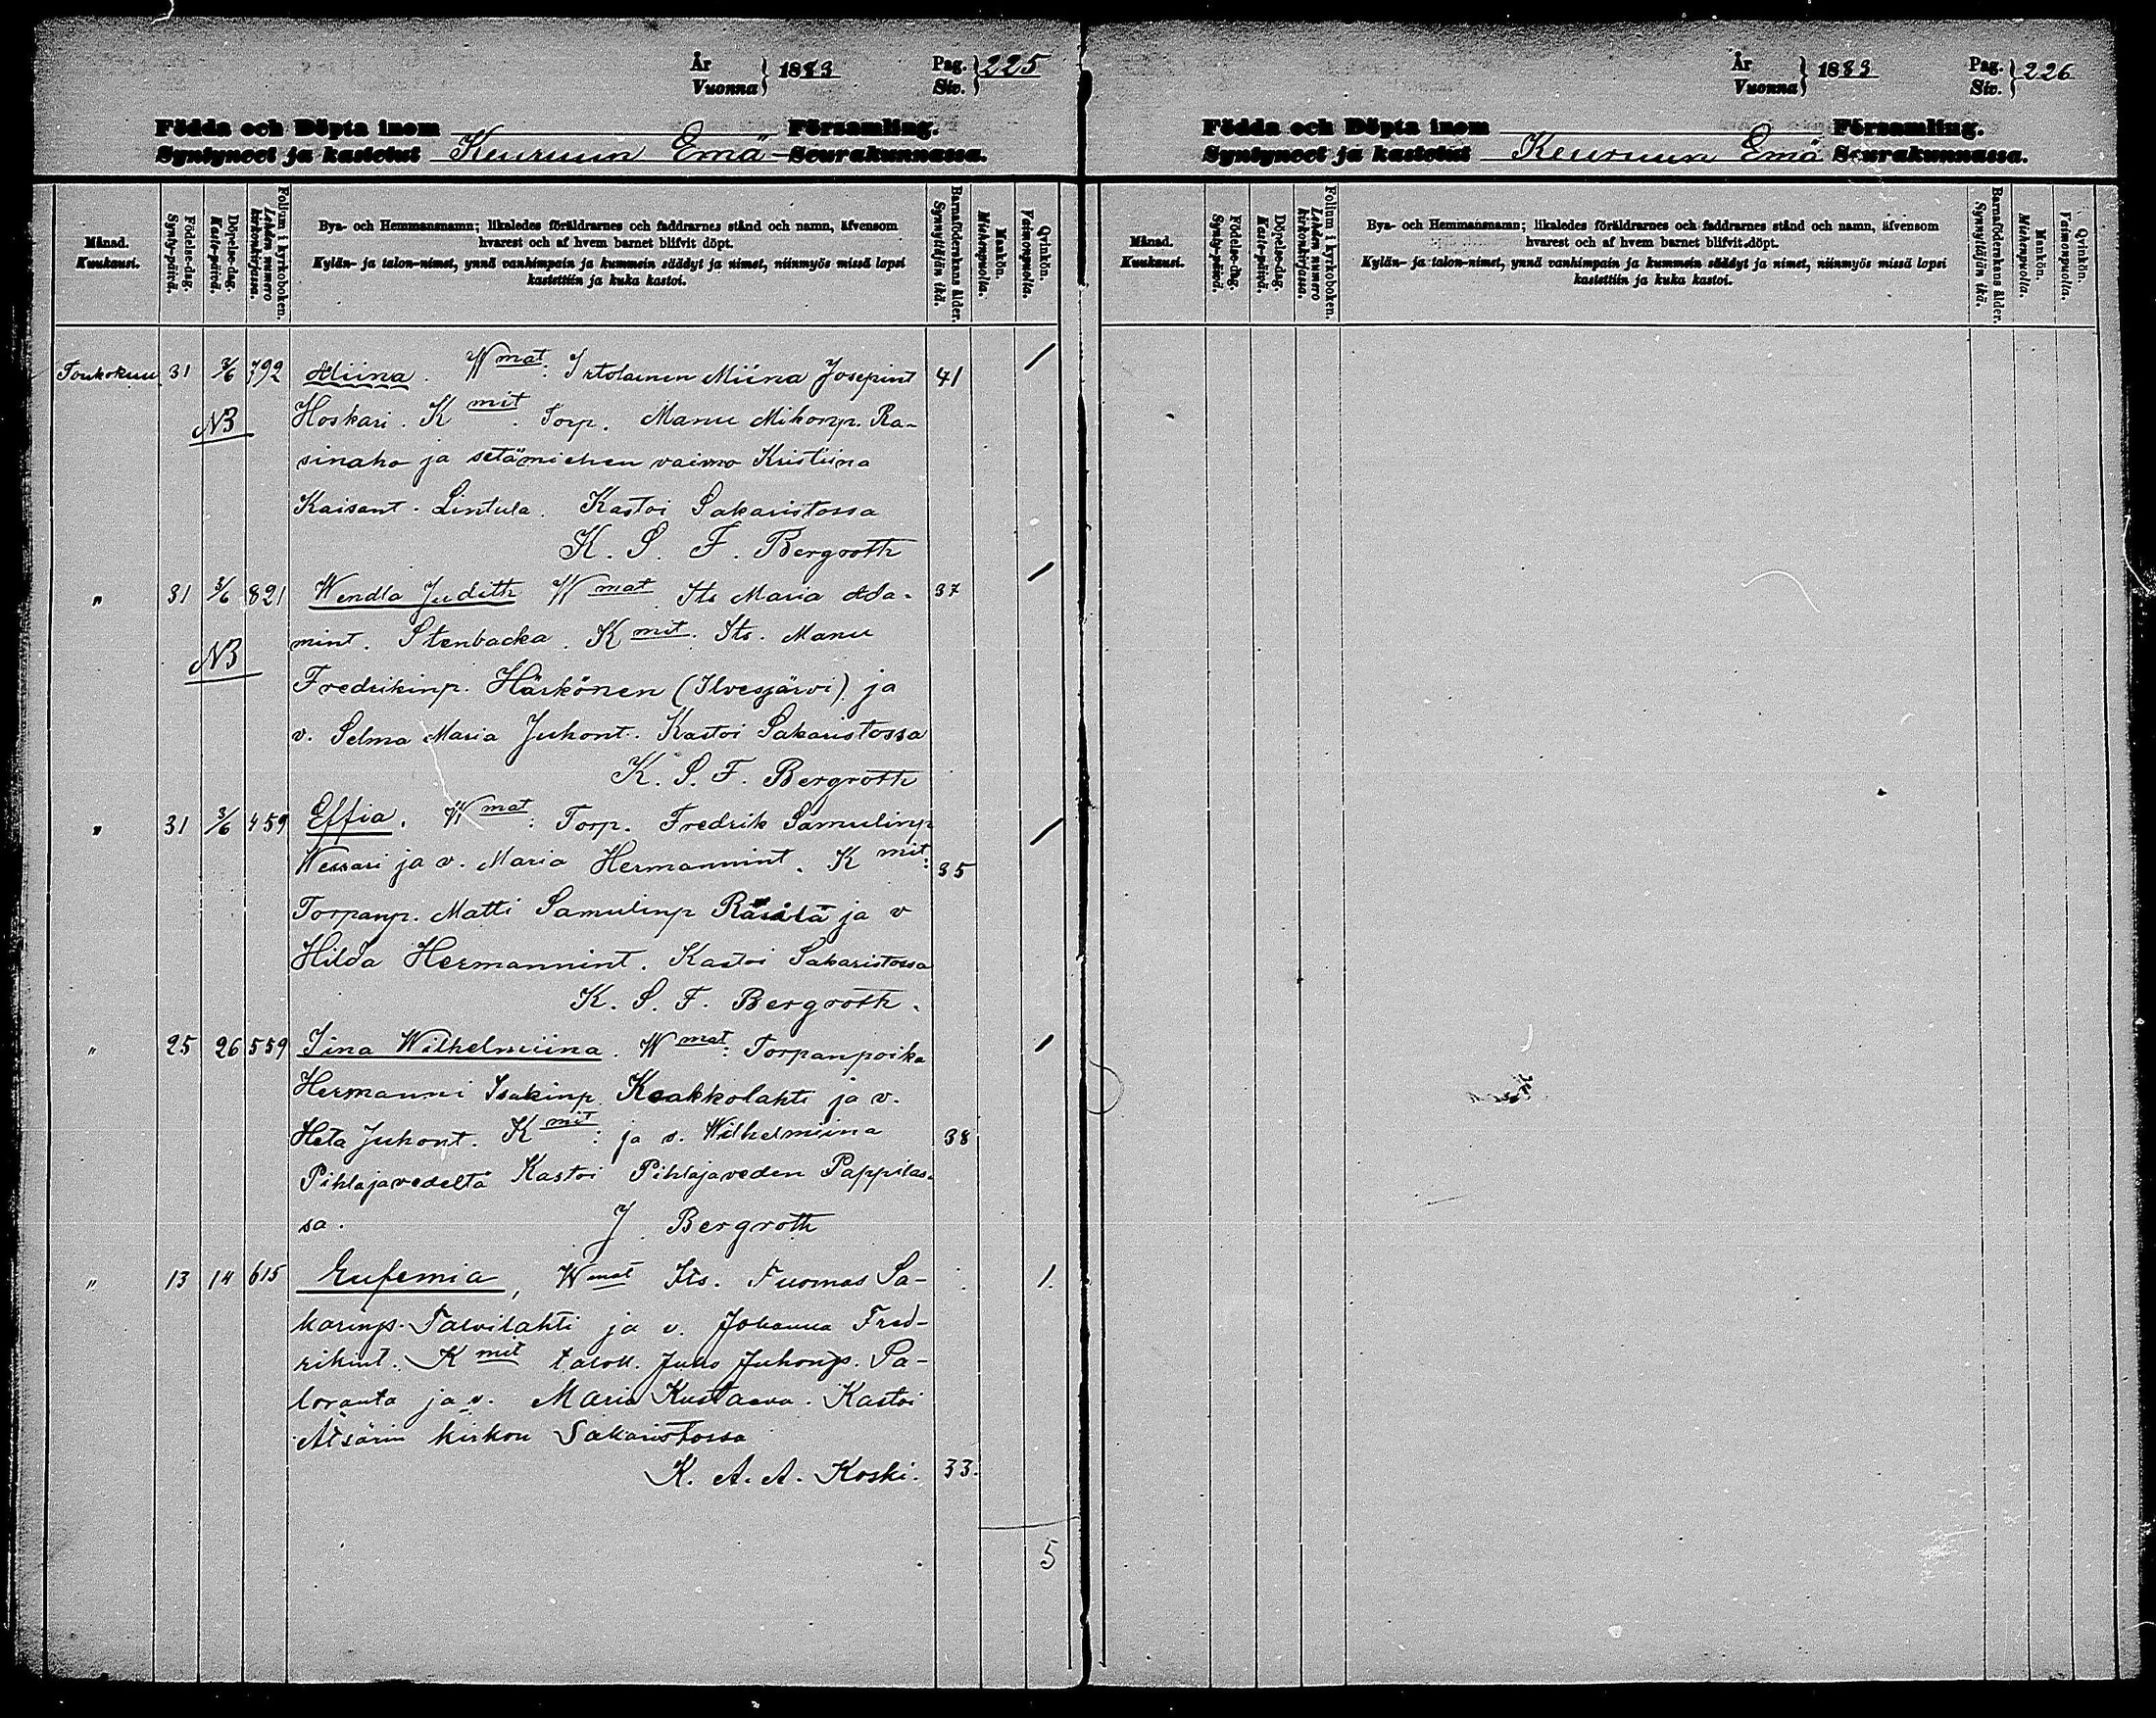 År
Vuonna } 1883
Pag.
Siv. } 225
Födda och Döpta inom Församling.
Syntyneet ja kastetut Keuruun Emä Seurakunnassa.
Månad.
Kuukausi.
Födelse-dag.
Synty-päivä.
Döpelse-dag.
Kaste-päivä.
Folium i kyrkoboken.
Lehden numero kirkonkirjassa.
Bya- och Hemmansnamn; likaledes föräldrarnes och faddrarnes stånd och namn, äfvensom
hvarest och af hvem barnet blifvit döpt.
Kylän- ja talon-nimet, ynnä vanhimpain ja kummein säädyt ja nimet, niinmyös missä lapsi
kastettiin ja kuka kastoi.
Barnaföderskans ålder.
Synnyttäjän ikä.
Mankön.
Miehenpuolia.
Qvinkön.
Vaimonpuolia.
Toukokuu 31 3/6 792 Miina. Wmat: Itolainen Miina Josepint 41 1
NB Hoskari. Kmit. Torp. Manu Mikonp. Ra-
sinaho ja setämiehen vaimo Kristiina
Kaisant. Lintula. Kastoi Sakaristossa
K. S. F. Bergroth
" 31 3/6 821 Wendla Judith Wmat Its Maria Ada- 37 1
NB mint. Stenbacka. Kmit. Its. Manu
Fredrikinp. Härkönen (Ilvesjärvi) ja
v. Selma Maria Juhont. Kastoi Sakaristossa
K. S. F. Bergroth
" 31 3/6 459 Effia. Wmat: Torp. Fredrik Samulinp 1
Wessari ja v. Maria Hermannint. Kmit: 35
Torpanp. Matti Samulinp Räsälä ja v
Hilda Hermannint. Kastoi Sakaristossa
K. S. F. Bergroth.
" 25 26 559 Iina Wilhelmiina. Wmat: Torpanpoika 1
Hermanni Isakinp. Kaakkolahti ja v.
Heta Juhont. Kmit: ja s. Wilhelmiina 38
Pihlajavedeltä Kastoi Pihlajaveden Pappilas-
sa. J. Bergroth
" 13 14 615 Eufemia, Wmat Its. Tuomas Sa- 1.
karinp. Talvilahti ja v. Johanna Fred-
rikint. Kmit taloll. Juho Juhonp. Pa-
loranta ja v. Maria Kustaava. Kastoi
Ätsärin kirkon Sakaristossa
K. A. A. Koski. 33.
5
År
Vuonna } 1883
Pag.
Siv. } 226
Födda och Döpta inom Församling.
Syntyneet ja kastetut Keuruun Emä Seurakunnassa.
Månad.
Kuukausi.
Födelse-dag.
Synty-päivä.
Döpelse-dag.
Kaste-päivä.
Folium i kyrkoboken.
Lehden numero kirkonkirjassa.
Bya- och Hemmansnamn; likaledes föräldrarnes och faddrarnes stånd och namn, äfvensom
hvarest och af hvem barnet blifvit döpt.
Kylän- ja talon-nimet, ynnä vanhimpain ja kummein säädyt ja nimet, niinmyös missä lapsi
kastettiin ja kuka kastoi.
Barnaföderskans ålder.
Synnyttäjän ikä.
Mankön.
Miehenpuolia.
Qvinkön.
Vaimonpuolia.